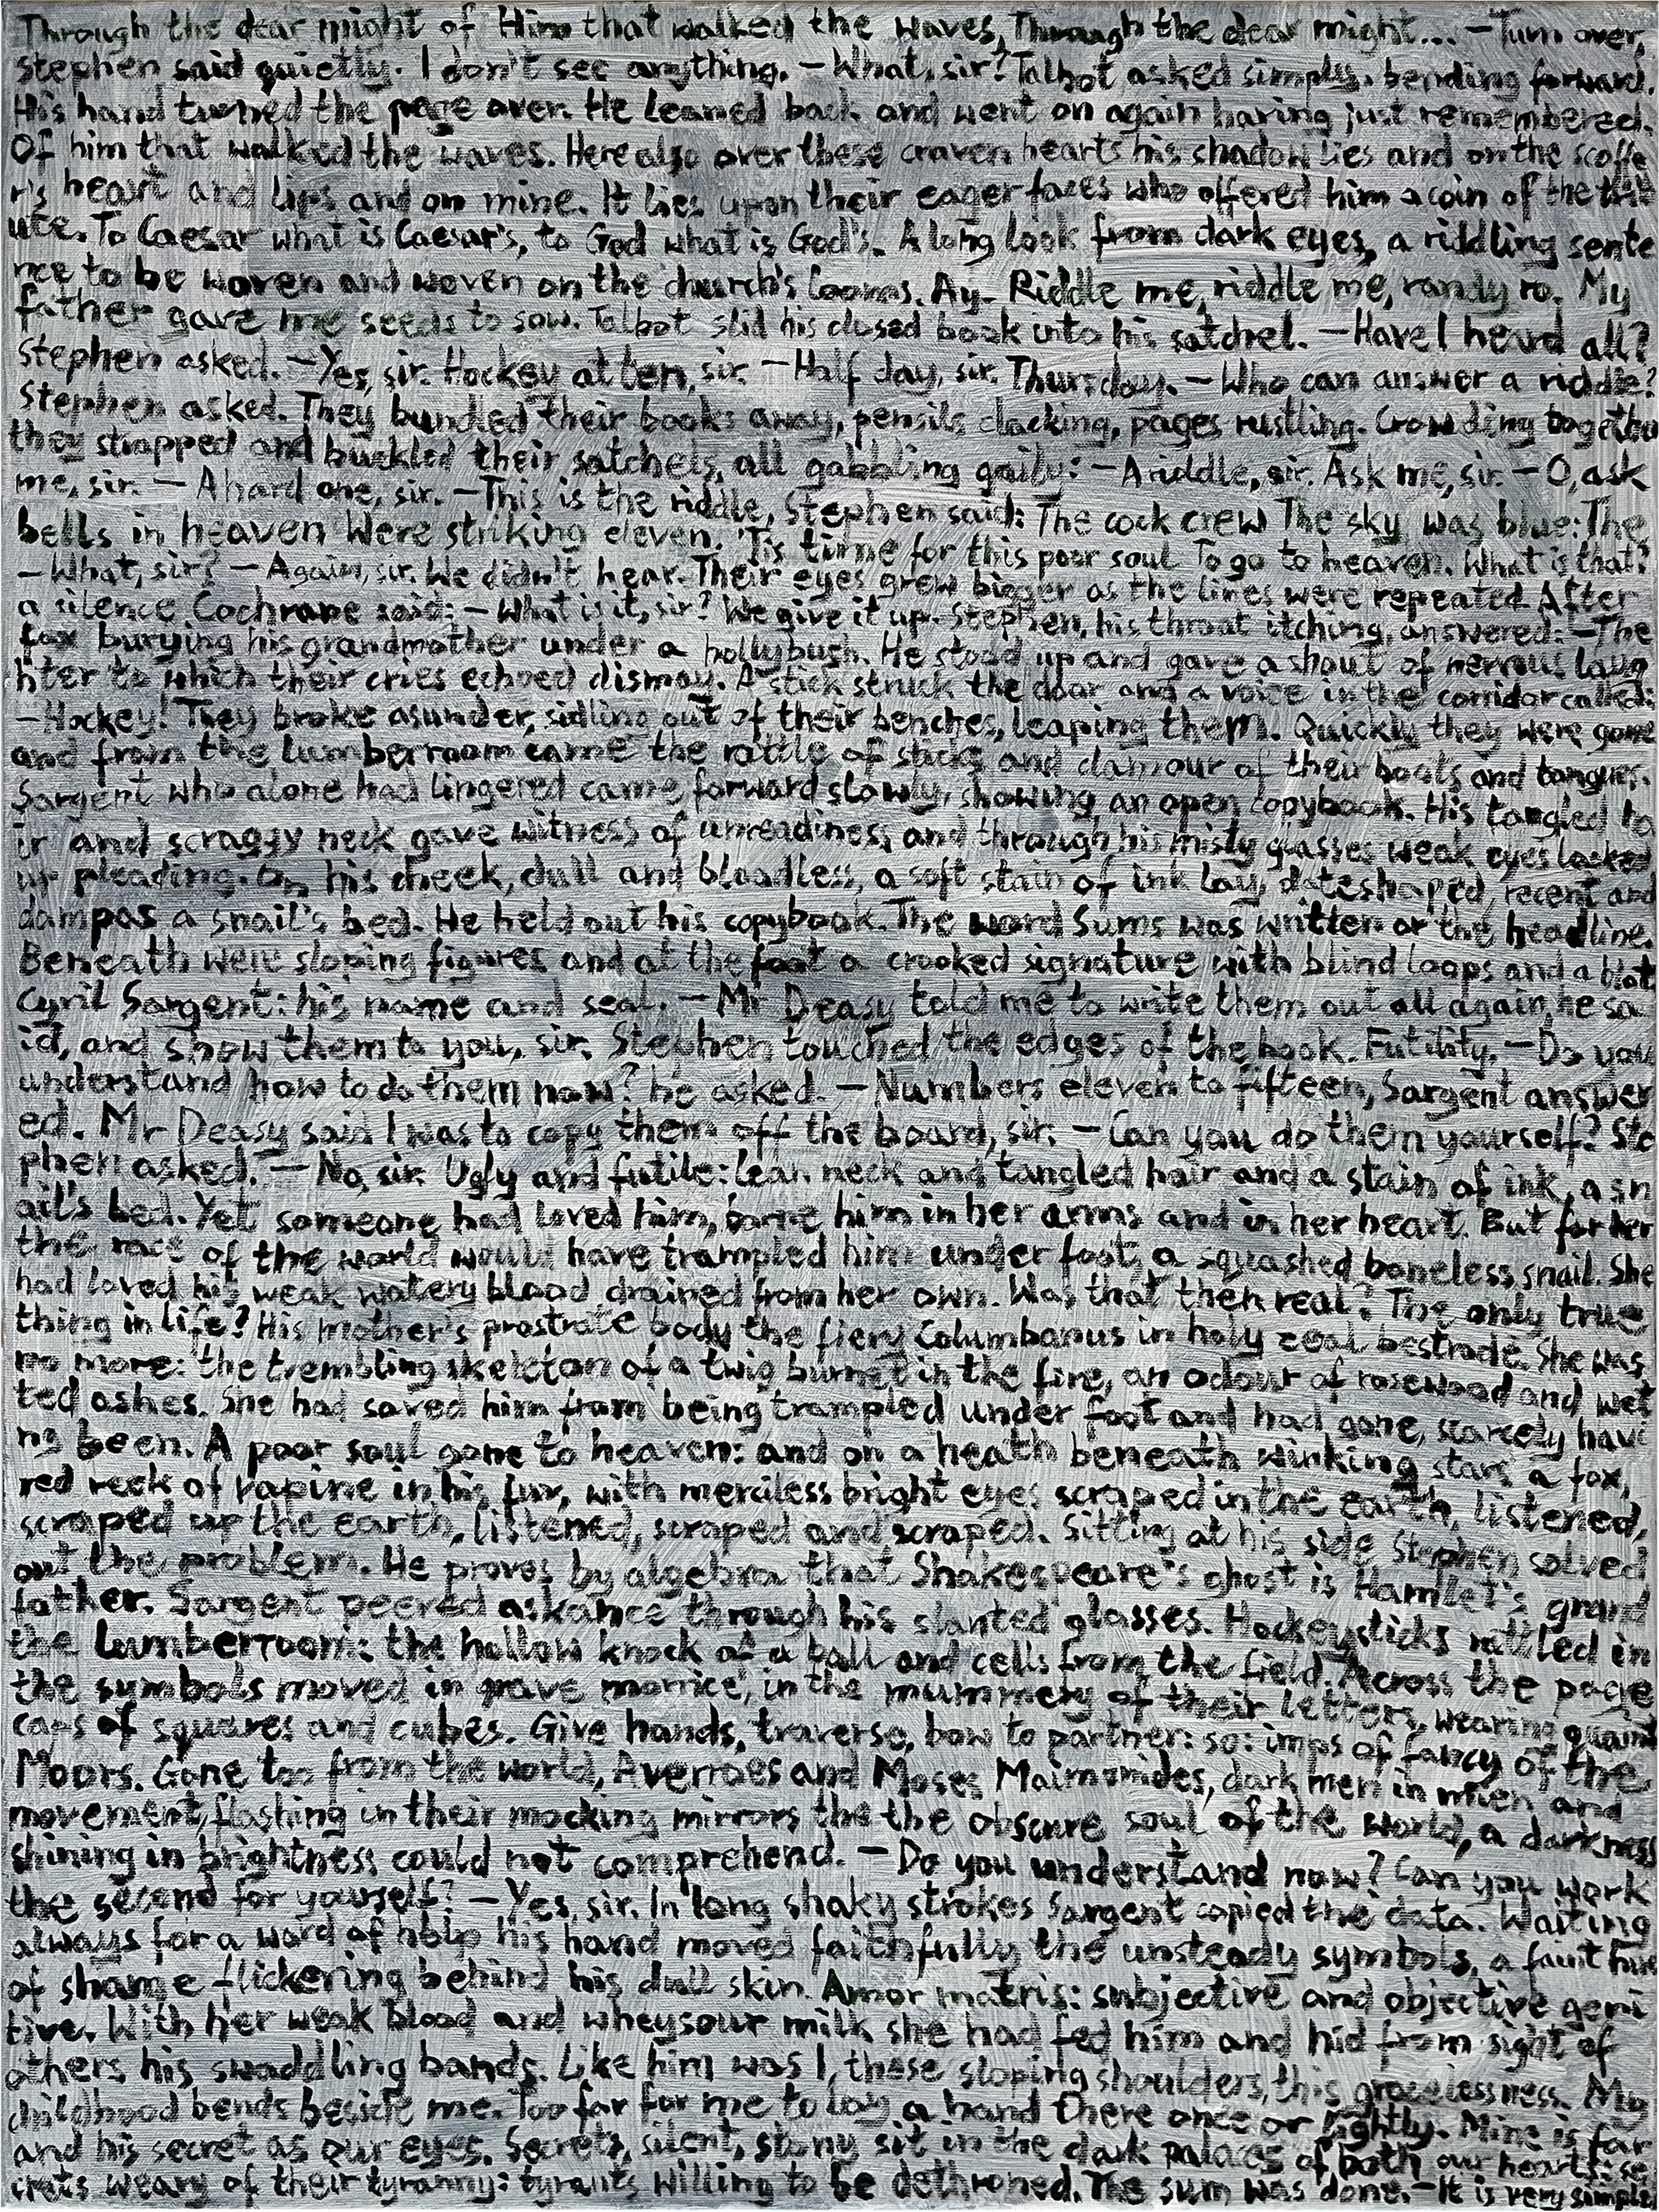 Through the dear might of Him that walked the waves, Through the dear might... —Turn over,
Stephen said quietly. I don't see anything. —What, sir? Talbot asked simply, bending forward.
His hand turned the page over. He leaned back and went on again having just remembered.
Of him that walked the waves. Here also over these craven hearts his shadow lies and on the scoffe
r's heart and lips and on mine. It lies upon their eager faces who offered him a coin of the trib
ute. To Caesar what is Caesar's, to God what is God's. A long look from dark eyes, a riddling sente
nce to be woven and woven on the church's looms. Ay. Riddle me, riddle me, randy ro. My
father gave me seeds to sow. Talbot slid his closed book into his satchel. —Have I heard all?
Stephen asked. —Yes, sir. Hockey at ten, sir. —Half day, sir. Thursday. —Who can answer a riddle?
Stephen asked. They bundled their books away, pencils clacking, pages rustling. Crowding together
they strapped and buckled their satchels, all gabbling gaily: —A riddle, sir. Ask me, sir. —O, ask
me, sir. —A hard one, sir. —This is the riddle, Stephen said: The cock crew The sky was blue: The
bells in heaven Were striking eleven. 'Tis time for this poor soul To go to heaven. What is that?
—What, sir? —Again, sir. We didn't hear. Their eyes grew bigger as the lines were repeated. After
a silence Cochrane said: —What is it, sir? We give it up. Stephen, his throat itching, answered: —The
fox burying his grandmother under a hollybush. He stood up and gave a shout of nervous laug
hter to which their cries echoed dismay. A stick struck the door and a voice in the corridor called:
—Hockey! They broke asunder, sidling out of their benches, leaping them. Quickly they were gone
and from the lumberroom came the rattle of sticks and clamour of their boots and tongues.
Sargent who alone had lingered came forward slowly, showing an open copybook. His tangled ha
ir and scraggy neck gave witness of unreadiness and through his misty glasses weak eyes looked
up pleading. On his cheek, dull and bloodless, a soft stain of ink lay, dateshaped, recent and
damp as a snail's bed. He held out his copybook. The word Sums was written on the headline.
Beneath were sloping figures and at the foot a crooked signature with blind loops and a blot.
Cyril Sargent: his name and seal. —Mr Deasy told me to write them out all again, he sa
id, and show them to you, sir. Stephen touched the edges of the book. Futility. —Do you
understand how to do them now? he asked. —Numbers eleven to fifteen, Sargent answer
ed. Mr Deasy said I was to copy them off the board, sir. —Can you do them yourself? Ste
phen asked. —No, sir. Ugly and futile: lean neck and tangled hair and a stain of ink, a sn
ail's bed. Yet someone had loved him, borne him in her arms and in her heart. But for her
the race of the world would have trampled him under foot, a squashed boneless snail. She
had loved his weak watery blood drained from her own. Was that then real? The only true
thing in life? His mother's prostrate body the fiery Columbanus in holy zeal bestrode. She was
no more: the trembling skeleton of a twig burnt in the fire, an odour of rosewood and wet
ted ashes. She had saved him from being trampled under foot and had gone, scarcely havi
ng been. A poor soul gone to heaven: and on a heath beneath winking stars a fox,
red reek of rapine in his fur, with merciless bright eyes scraped in the earth, listened,
scraped up the earth, listened, scraped and scraped. Sitting at his side Stephen solved
out the problem. He proves by algebra that Shakespeare's ghost is Hamlet's grand
father. Sargent peered askance through his slanted glasses. Hockeysticks rattled in
the lumberroom: the hollow knock of a ball and calls from the field. Across the page
the symbols moved in grave morrice, in the mummery of their letters, wearing quaint
caps of squares and cubes. Give hands, traverse, bow to partner: so: imps of fancy of the
Moors. Gone too from the world, Averroes and Moses Maimonides, dark men in mien and
movement, flashing in their mocking mirrors the the obscure soul of the world, a darkness
shining in brightness could not comprehend. —Do you understand now? Can you work
the second for yourself? —Yes, sir. In long shaky strokes Sargent copied the data. Waiting
always for a word of help his hand moved faithfully the unsteady symbols, a faint hue
of shame flickering behind his dull skin. Amor matris: subjective and objective geni
tive. With her weak blood and wheysour milk she had fed him and hid from sight of
others his swaddling bands. Like him was I, these sloping shoulders, this gracelessness. My
childhood bends beside me. Too far for me to lay a hand there once or lightly. Mine is far
and his secret as our eyes. Secrets, silent, stony sit in the dark palaces of both our hearts: se
crets weary of their tyranny: tyrants willing to be dethroned. The sum was done. —It is very simple